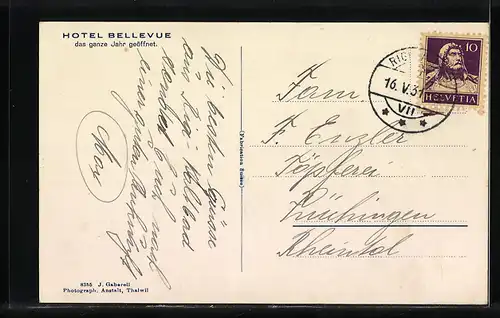 HOTEL BELLEVUE
das ganze Jahr geöffnet.
Die besten Grüsse
aus Rigi-Kaltbad
sendet Euch nach
guter Ankunft
Max
8355 J. Gaberell
Photograph. Anstalt, Thalwil
(Fabrication Suisse)
RIG
16.V.3
VII
10
HELVETIA
Fam.
F. Enzler
Töpferei
Rheintal